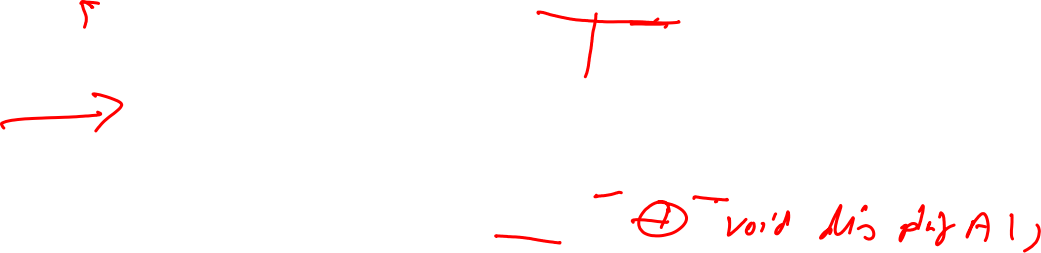 + void display A1,